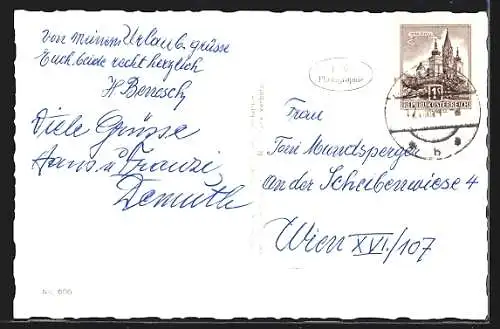 Von meinem Urlaub grüsse
Euch beide recht herzlich
H Benesch
Viele Grüsse
Hans u. Franzi
Demuth
Photographie
1S
REPUBLIK ÖSTERREICH
b
Frau
Toni Mundsperger
An der Scheibenwiese 4
Wien XVI./107